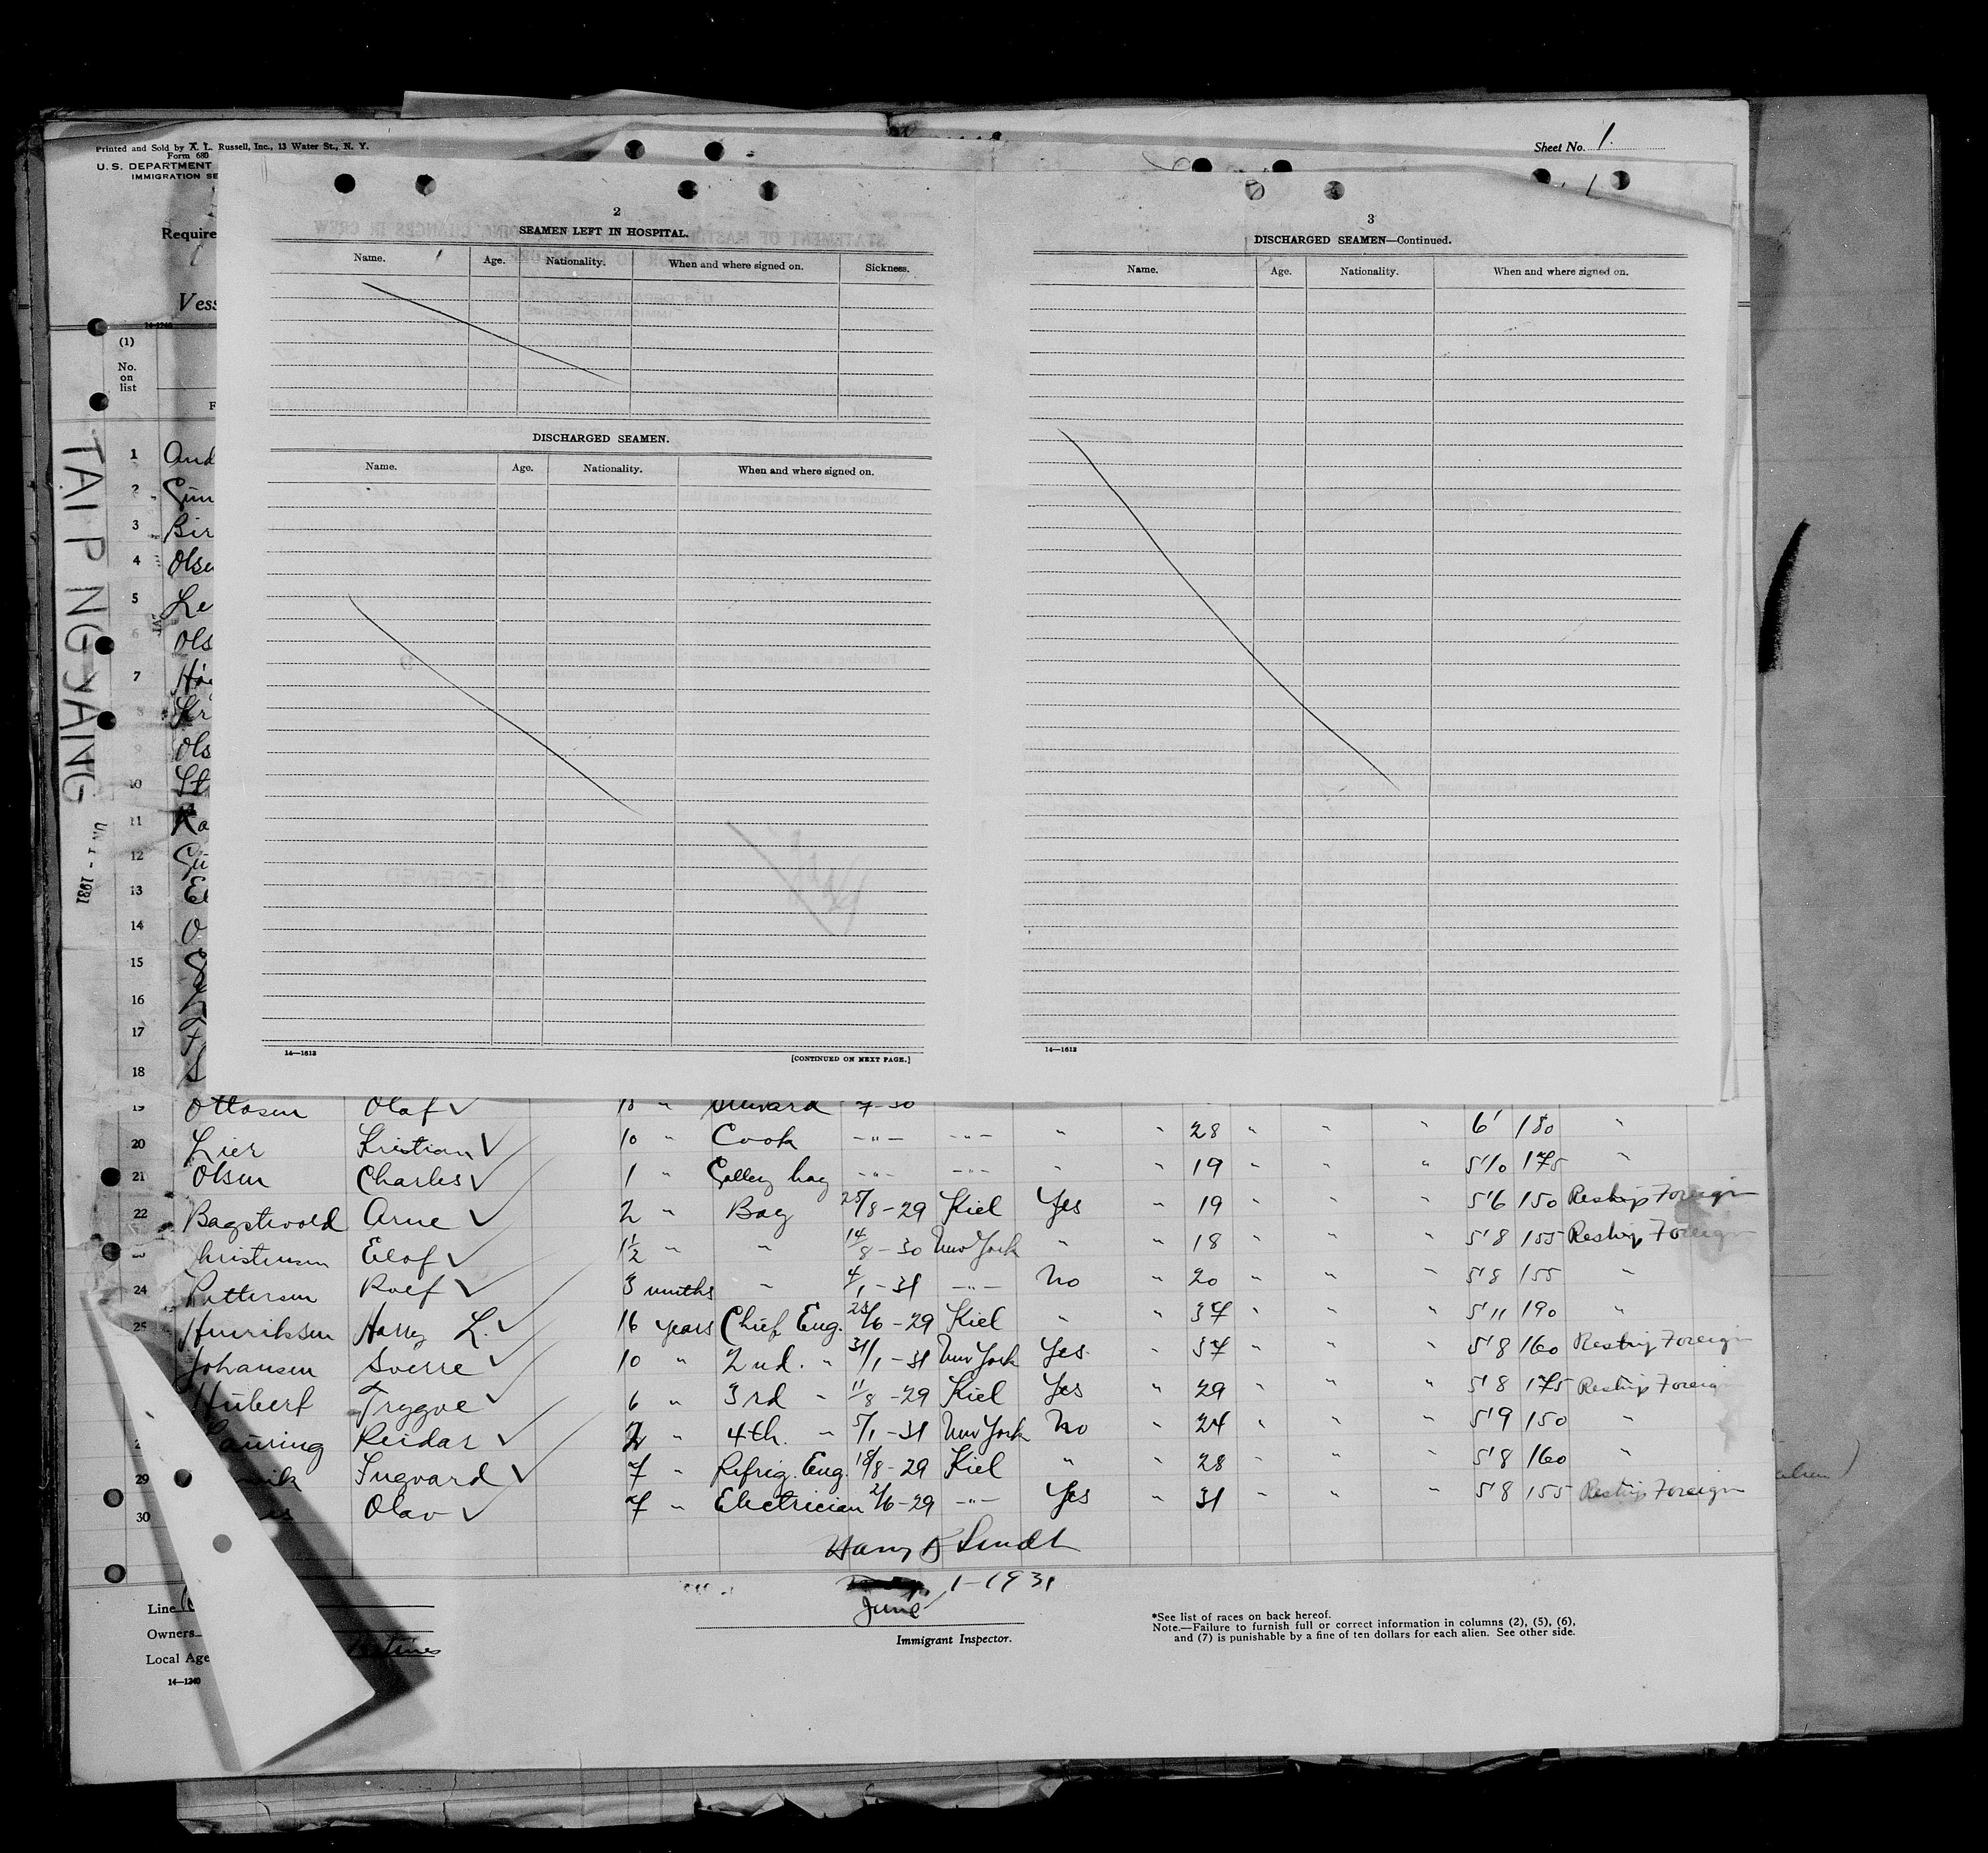 Printed and Sold by A. L. Russell, Inc., 13 Water St., N. Y.
Form 680
U. S. DEPARTMENT
IMMIGRATION SE
Sheet No. 1.
Require
Vess
14-1240
(1)
No.
on
list
F
TAI PING YANG
1 - 1931
2
SEAMEN LEFT IN HOSPITAL.
Name. Age. Nationality. When and where signed on. Sickness.
DISCHARGED SEAMEN.
Name. Age. Nationality. When and where signed on.
14—1613
[CONTINUED ON NEXT PAGE.]
3
DISCHARGED SEAMEN—Continued.
Name. Age. Nationality. When and where signed on.
14—1613
1 And
2 Gun
3 Bir
4 Olse
5 Le
6 Ols
7 Hå
8 Kr
9 Ols
10 St
11 Ka
12 Gu
13 El
14 O
15
16
17
18 S
19 Ottosen Olaf ✓ 18 " 7-30
20 Lier Kristian ✓ 10 " Cook -"- -"- " " 28 " " " 6' 180 "
21 Olsen Charles ✓ 1 " Galley boy -"- -"- " " 19 " " " 5'10 175 "
22 Bagstevold Arne ✓ 2 " Boy 25/8-29 Kiel Yes " 19 " " " 5'6 150 Reship Foreign
23 hristensen Elof ✓ 1½ " " 14/8-30 New York " " 18 " " " 5'8 155 Reship Foreign
24 Pettersen Rolf ✓ 3 months " 4/1-31 -"- No " 20 " " " 5'8 155 "
25 Henriksen Harry L. ✓ 16 years Chief Eng. 25/6-29 Kiel " " 37 " " " 5'11 190 "
Johansen Sverre ✓ 10 " 2nd. " 31/1-31 New York Yes " 37 " " " 5'8 160 Reship Foreign
Hubert Trygve ✓ 6 " 3rd " 11/8-29 Kiel Yes " 29 " " " 5'8 175 Reship Foreign
auring Reidar ✓ 2 " 4th. " 5/1-31 New York No " 24 " " " 5'9 150 "
29 vik Ingvard ✓ 7 " Refrig. Eng. 18/8-29 Kiel " " 28 " " " 5'8 160 "
30 es Olav ✓ 7 " Electrician 2/6-29 -"- Yes " 31 " " " 5'8 155 Reship Foreign
June 1-1931
Immigrant Inspector.
Line
Owners
Local Age
14—1240
*See list of races on back hereof.
Note.—Failure to furnish full or correct information in columns (2), (5), (6),
and (7) is punishable by a fine of ten dollars for each alien. See other side.